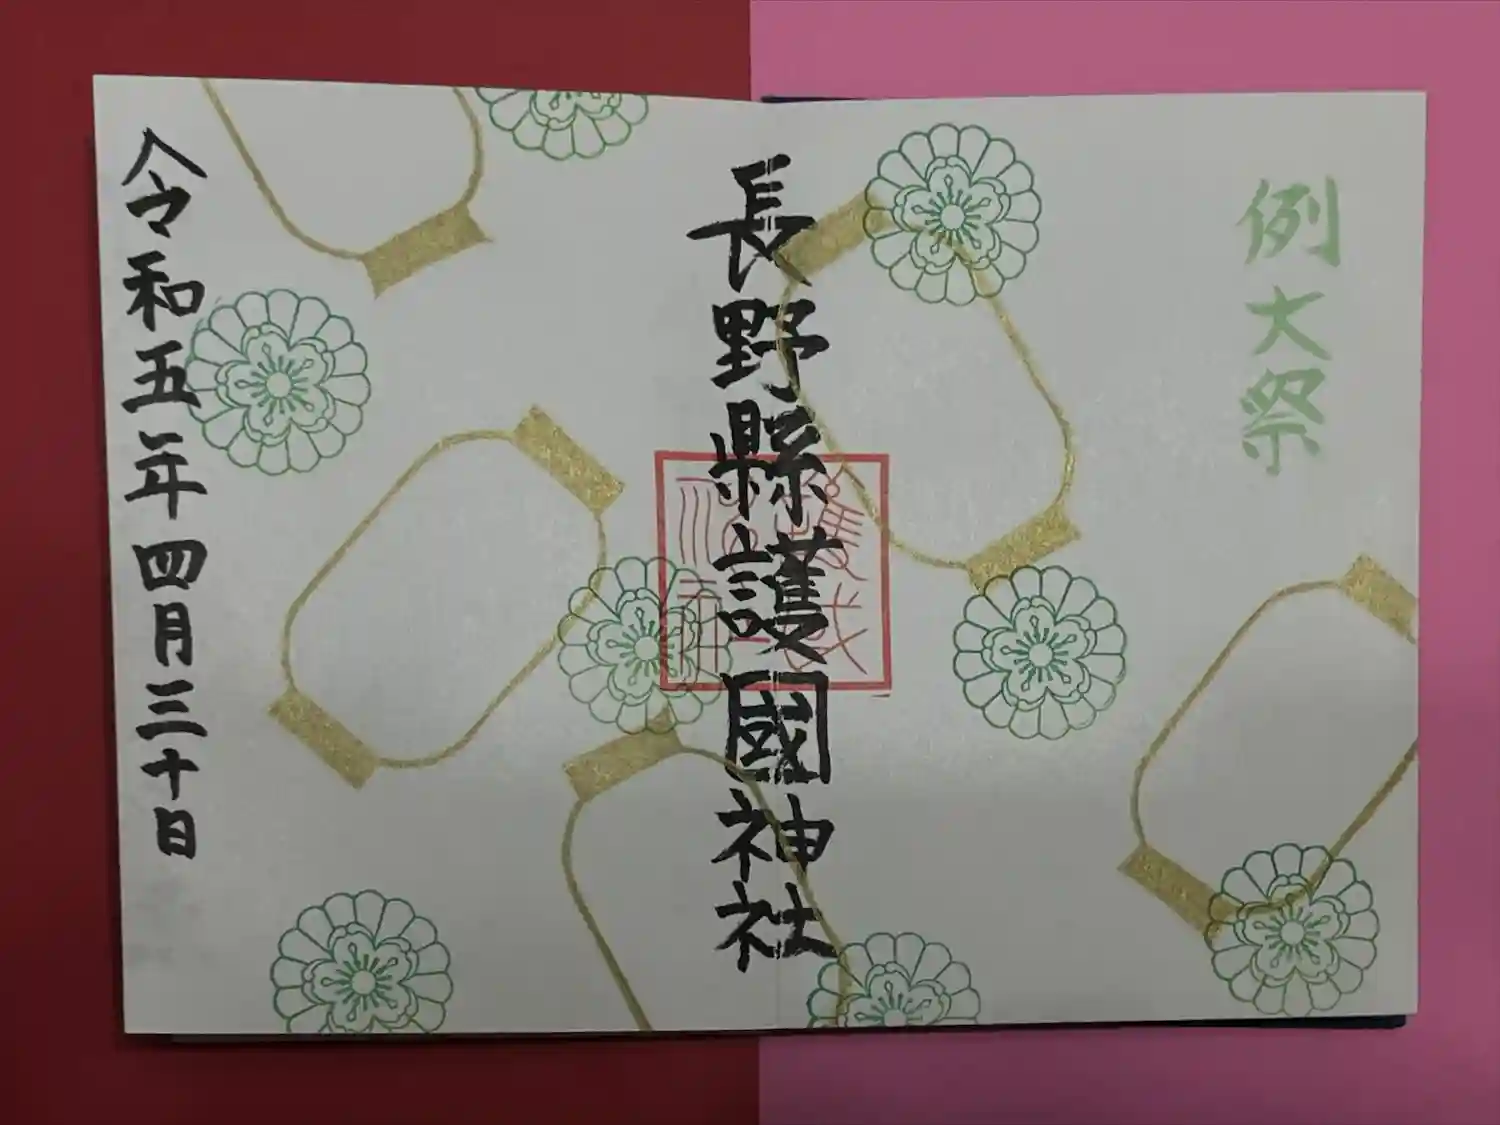 例大祭
長野縣護國神社
令和五年四月三十日